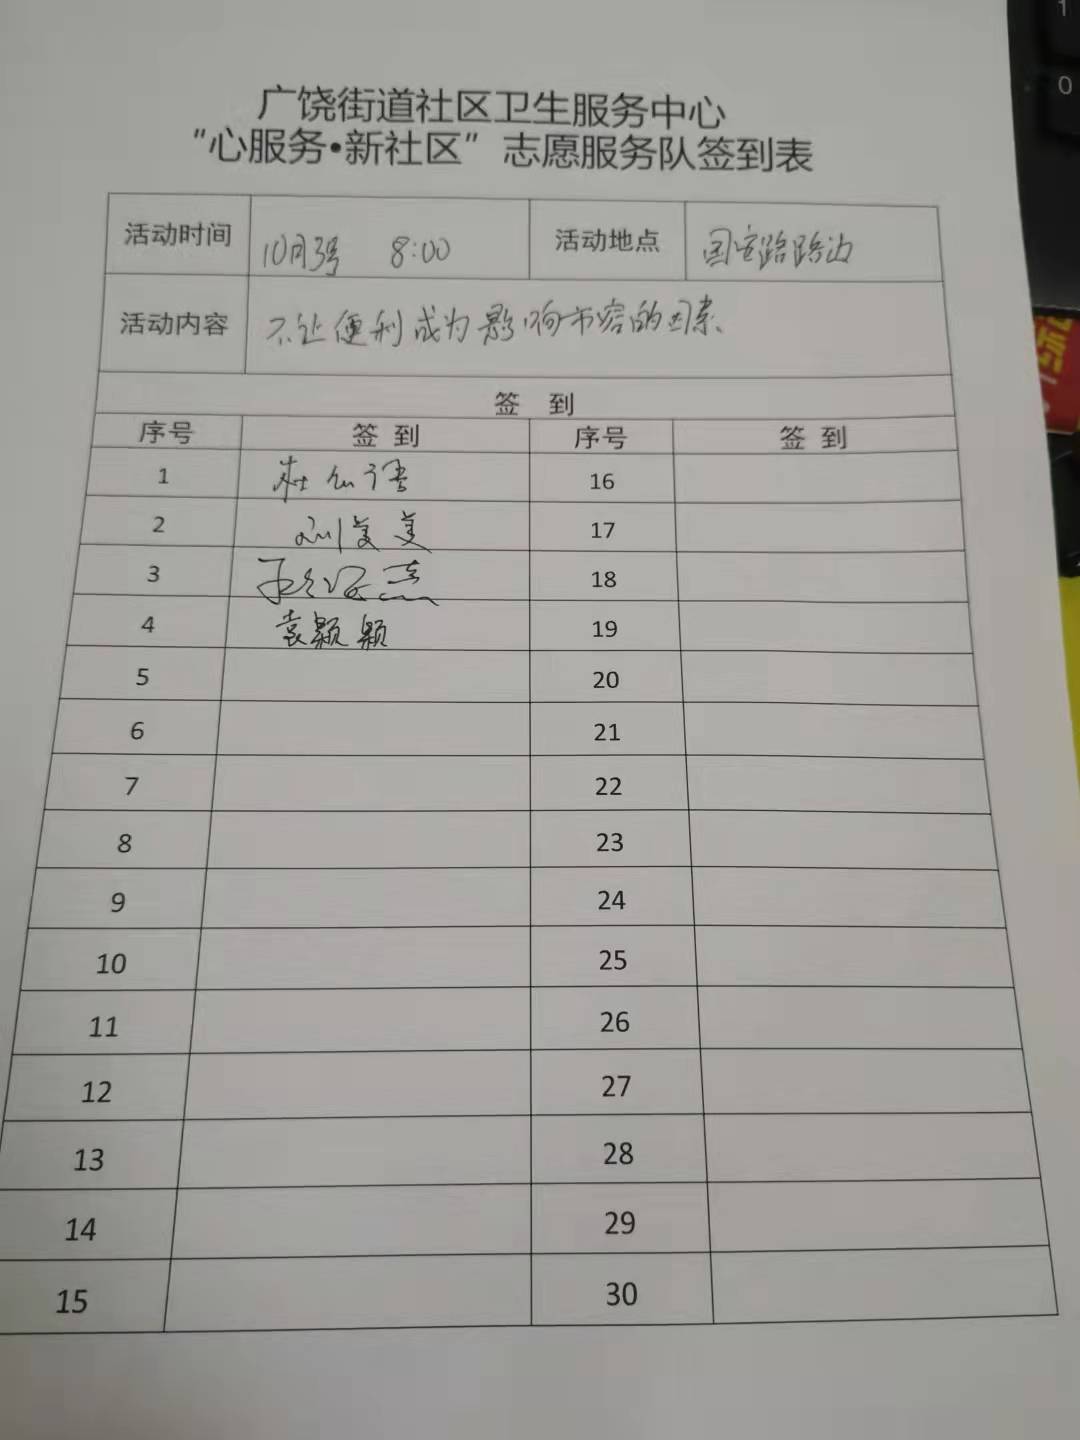 广饶街道社区卫生服务中心
“心服务•新社区”志愿服务队签到表
活动时间 10月3号 8:00 活动地点 国安路路边
活动内容 不让便利成为影响市容的因素
签 到
序号 签 到 序号 签 到
1 16
2 刘美美 17
3 18
4 袁颖颖 19
5 20
6 21
7 22
8 23
9 24
10 25
11 26
12 27
13 28
14 29
15 30
1
0